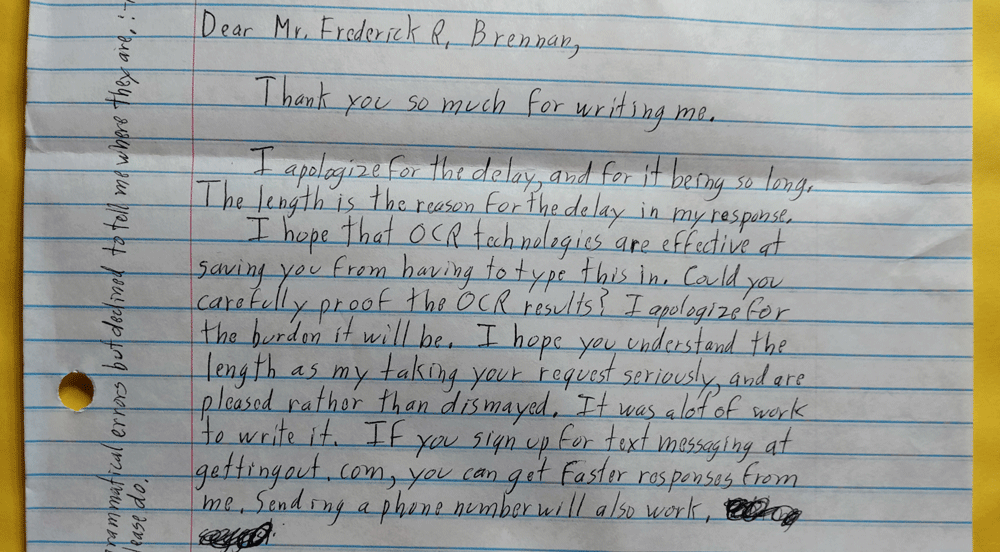 Dear Mr. Frederick R. Brennan,
Thank you so much for writing me.
I apologize for the delay, and for it being so long.
The length is the reason for the delay in my response.
I hope that OCR technologies are effective at
saving you from having to type this in. Could you
carefully proof the OCR results? I apologize for
the burden it will be. I hope you understand the
length as my taking your request seriously, and are
pleased rather than dismayed. It was a lot of work
to write it. If you sign up for text messaging at
gettingout.com, you can get faster responses from
me. Sending a phone number will also work.
grammatical errors but declined to tell me where they are, :-
lease do.